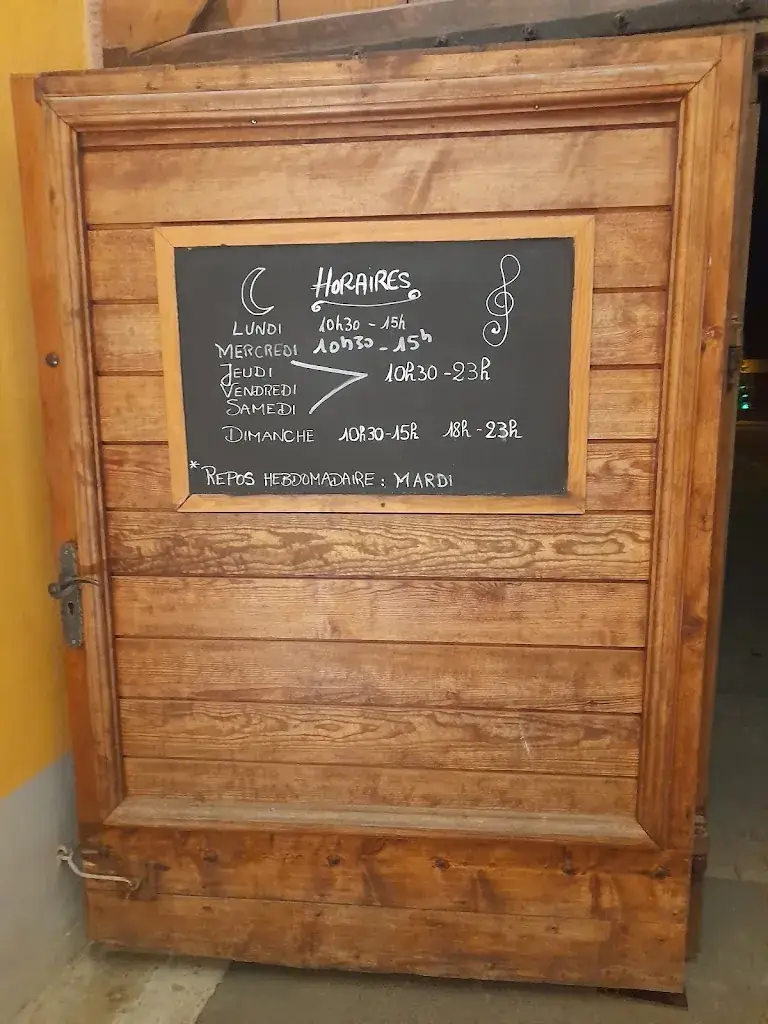 HORAIRES
LUNDI 10h30 - 15h
MERCREDI 10h30 - 15h
JEUDI
VENDREDI 10h30 - 23h
SAMEDI
DIMANCHE 10h30-15h 18h - 23h
*REPOS HEBDOMADAIRE : MARDI